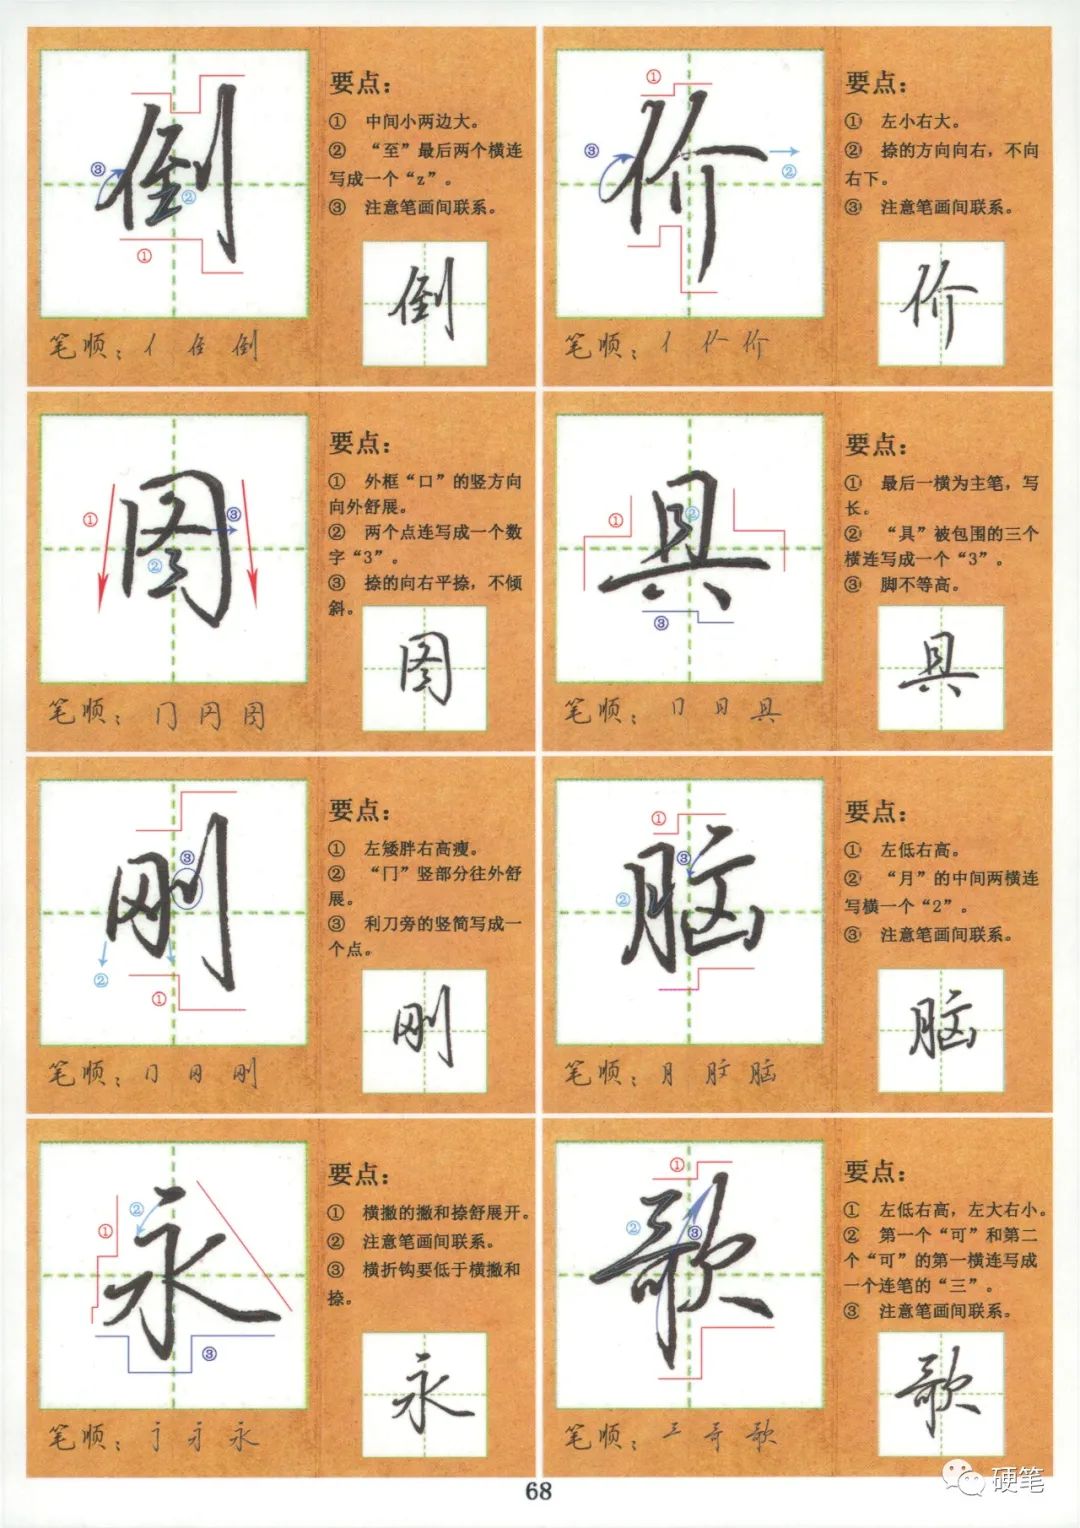 倒
要点：
① 中间小两边大。
② “至”最后两个横连
写成一个“z”。
③ 注意笔画间联系。
倒
笔顺：亻 侄 倒
价
要点：
① 左小右大。
② 捺的方向向右，不向
右下。
③ 注意笔画间联系。
价
笔顺：亻 价
图
要点：
① 外框“口”的竖方向
向外舒展。
② 两个点连写成一个数
字“3”。
③ 捺的向右平捺，不倾
斜。
图
笔顺：冂 图
具
要点：
① 最后一横为主笔，写
长。
② “具”被包围的三个
横连写成一个“3”。
③ 脚不等高。
具
笔顺：冂 月 具
刚
要点：
① 左矮胖右高瘦。
② “冂”竖部分往外舒
展。
③ 利刀旁的竖简写成一
个点。
刚
笔顺：冂 冈 刚
脑
要点：
① 左低右高。
② “月”的中间两横连
写横一个“2”。
③ 注意笔画间联系。
脑
笔顺：月 脑
永
要点：
① 横撇的撇和捺舒展开。
② 注意笔画间联系。
③ 横折钩要低于横撇和
捺。
永
笔顺：永
歌
要点：
① 左低右高，左大右小。
② 第一个“可”和第二
个“可”的第一横连写成
一个连笔的“三”。
③ 注意笔画间联系。
歌
笔顺：哥 歌
68
硬笔